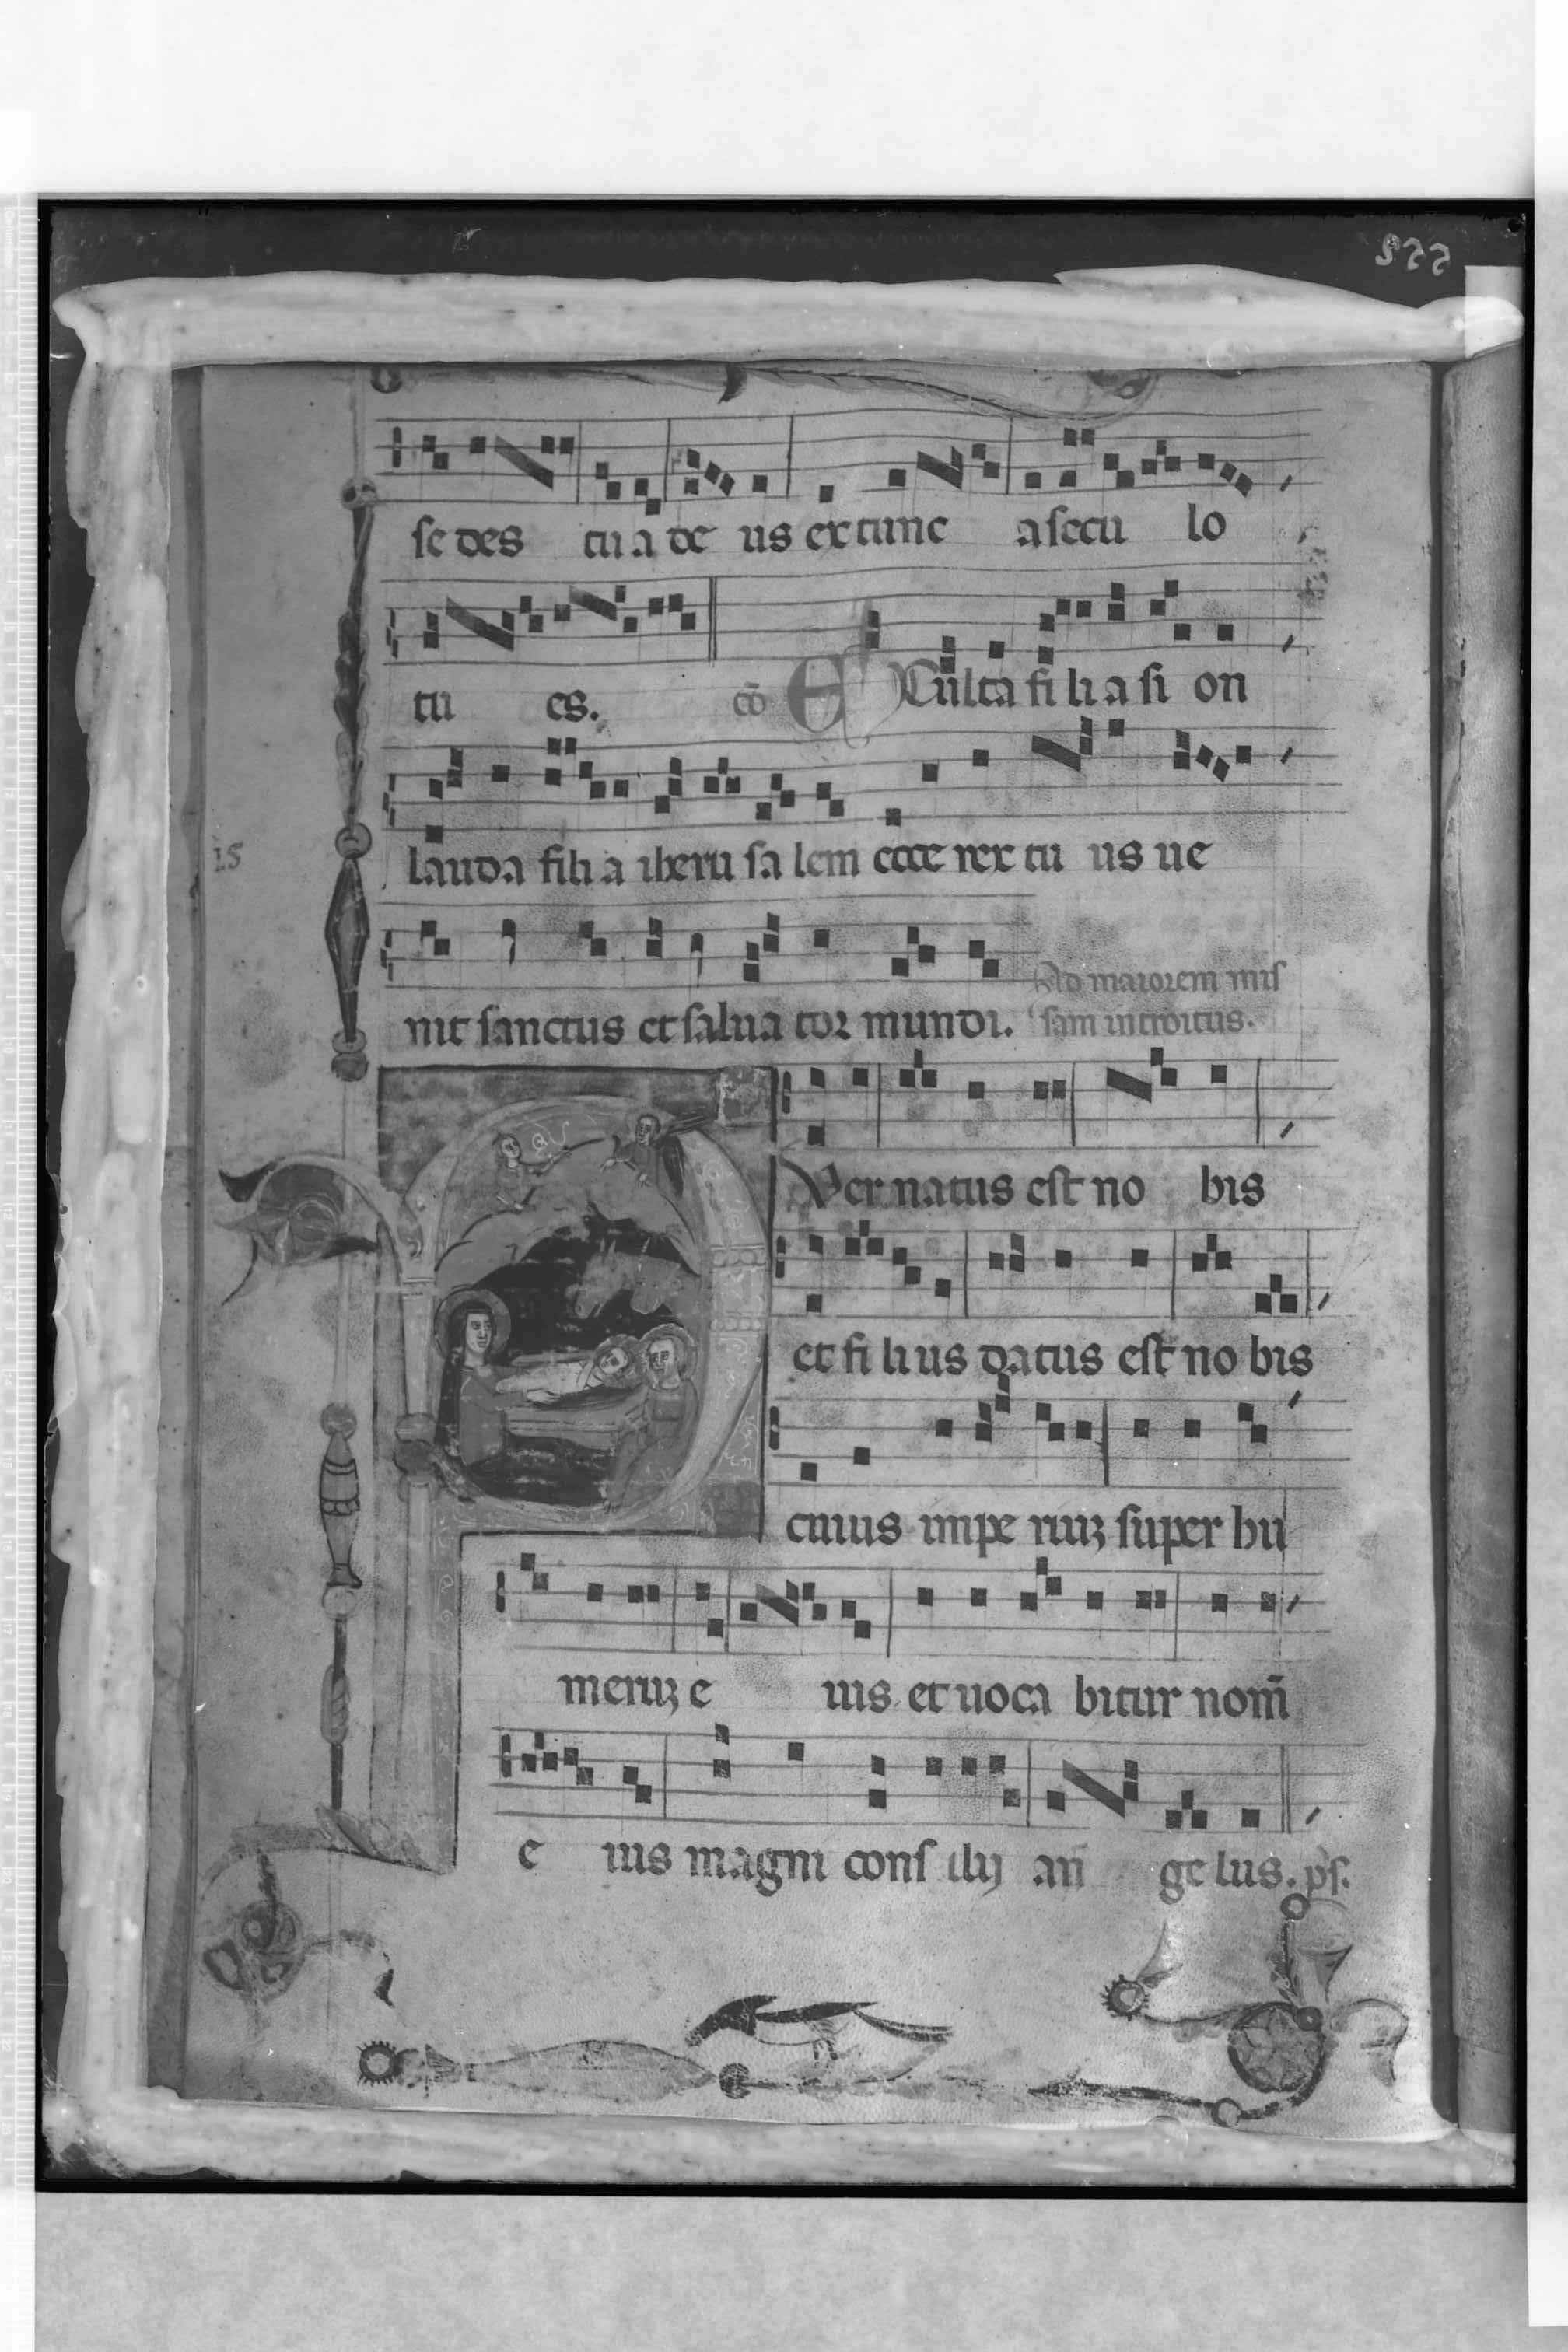 se des tu a de us ex tunc a secu lo
tu es. cō EXulta fi li a si on
lauda fili a iheru sa lem ecce rex tu us ue
nit sanctus et salua tor mundi. Ad maiorem mis
sam introitus.
PUer natus est no bis
et fi li us datus est no bis
cuius impe riuʒ super hu
meruʒ e ius et uoca bitur nom̄
e ius magni cons ilij an ge lus. ps.
15